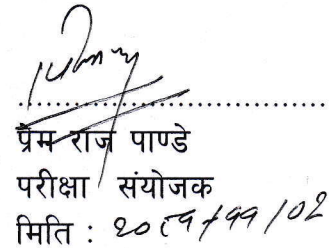 प्रेम राज पाण्डे
परीक्षा संयोजक
मिति : २०८१/११/०२